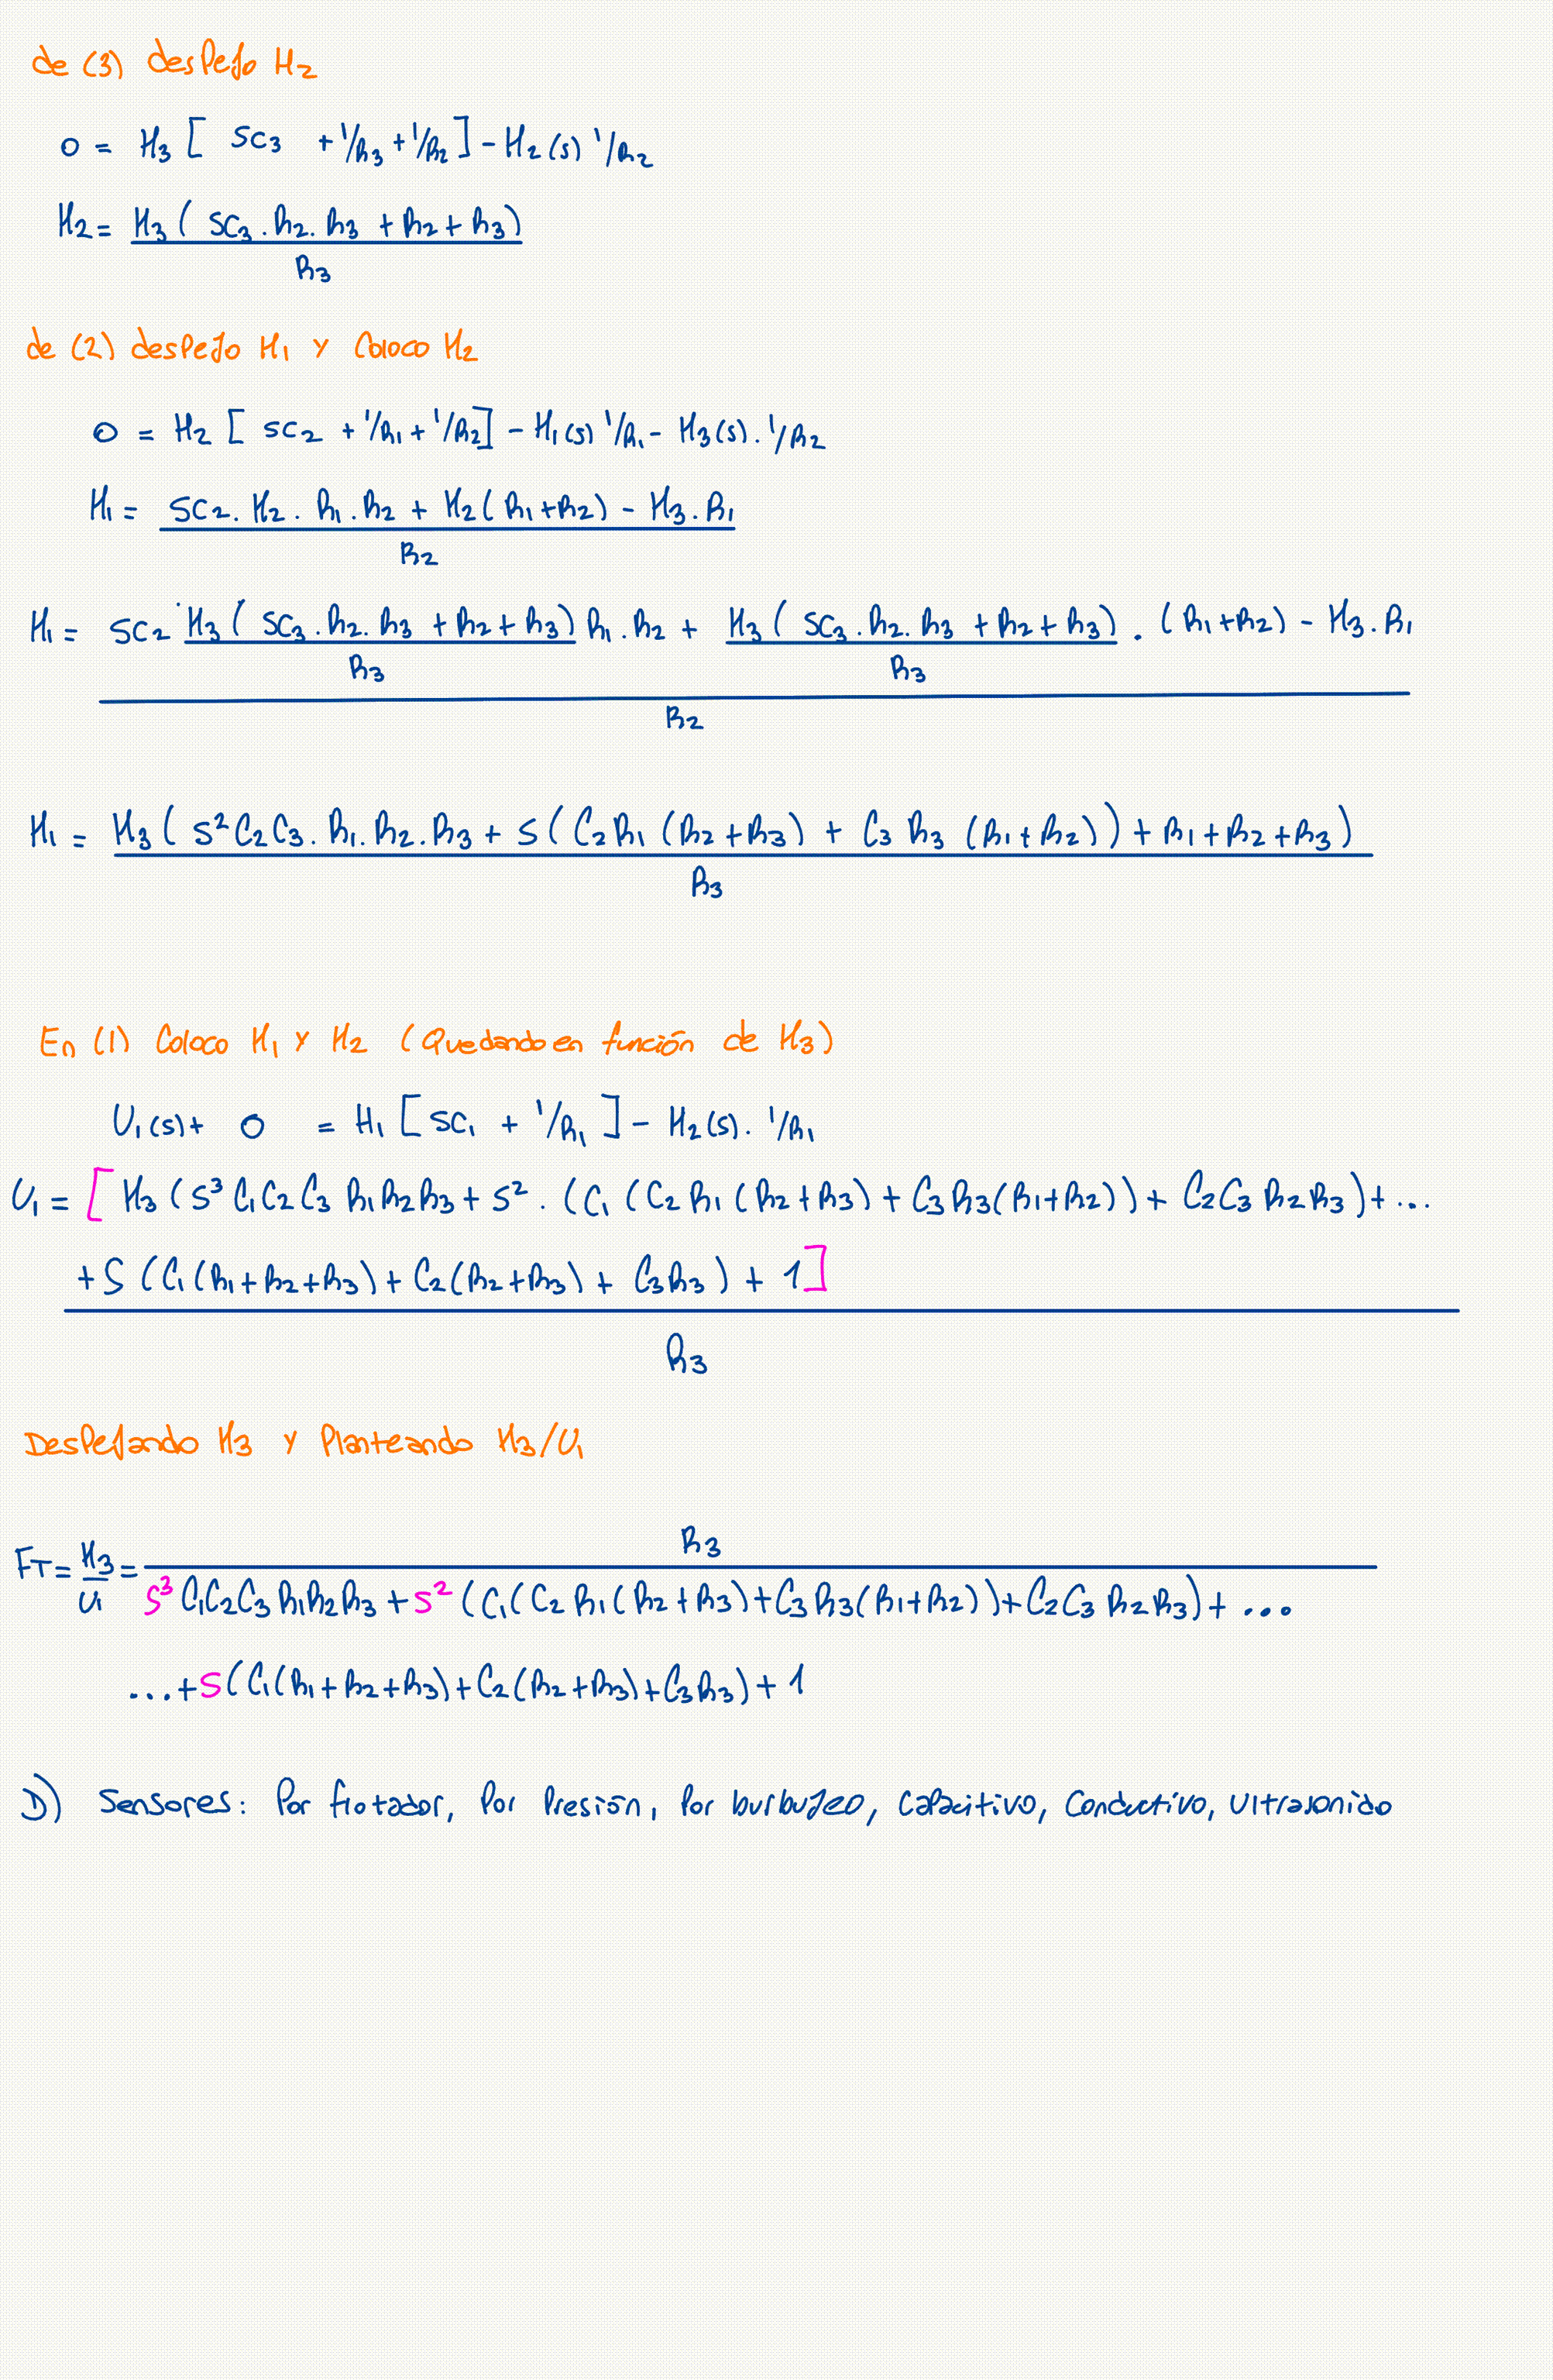 de (3) despejo H2
0 = H3 [ SC3 + 1/R3 + 1/R2 ] - H2(s) 1/R2
H2 = H3 ( SC3 . R2 . R3 + R2 + R3 )
R3
de (2) despejo H1 y Coloco H2
0 = H2 [ SC2 + 1/R1 + 1/R2 ] - H1(s) 1/R1 - H3(s) . 1/R2
H1 = SC2 . H2 . R1 . R2 + H2 ( R1 + R2 ) - H3 . R1
R2
H1 = SC2 . H3 ( SC3 . R2 . R3 + R2 + R3 ) R1 . R2 + H3 ( SC3 . R2 . R3 + R2 + R3 ) . ( R1 + R2 ) - H3 . R1
R3 R3
R2
H1 = H3 ( S² C2 C3 . R1 . R2 . R3 + S ( C2 R1 ( R2 + R3 ) + C3 R3 ( R1 + R2 ) ) + R1 + R2 + R3 )
R3
En (1) Coloco H1 y H2 ( Quedando en función de H3 )
U1(s) + 0 = H1 [ SC1 + 1/R1 ] - H2(s) . 1/R1
U1 = [ H3 ( S³ C1 C2 C3 R1 R2 R3 + S² . ( C1 ( C2 R1 ( R2 + R3 ) + C3 R3 ( R1 + R2 ) ) + C2 C3 R2 R3 ) + ...
+ S ( C1 ( R1 + R2 + R3 ) + C2 ( R2 + R3 ) + C3 R3 ) + 1 ]
R3
Despejando H3 y Planteando H3/U1
R3
FT = H3 =
U1
S³ C1 C2 C3 R1 R2 R3 + S² ( C1 ( C2 R1 ( R2 + R3 ) + C3 R3 ( R1 + R2 ) ) + C2 C3 R2 R3 ) + ...
... + S ( C1 ( R1 + R2 + R3 ) + C2 ( R2 + R3 ) + C3 R3 ) + 1
D) Sensores: Por flotador, Por Presión, Por burbujeo, Capacitivo, Conductivo, Ultrasonido